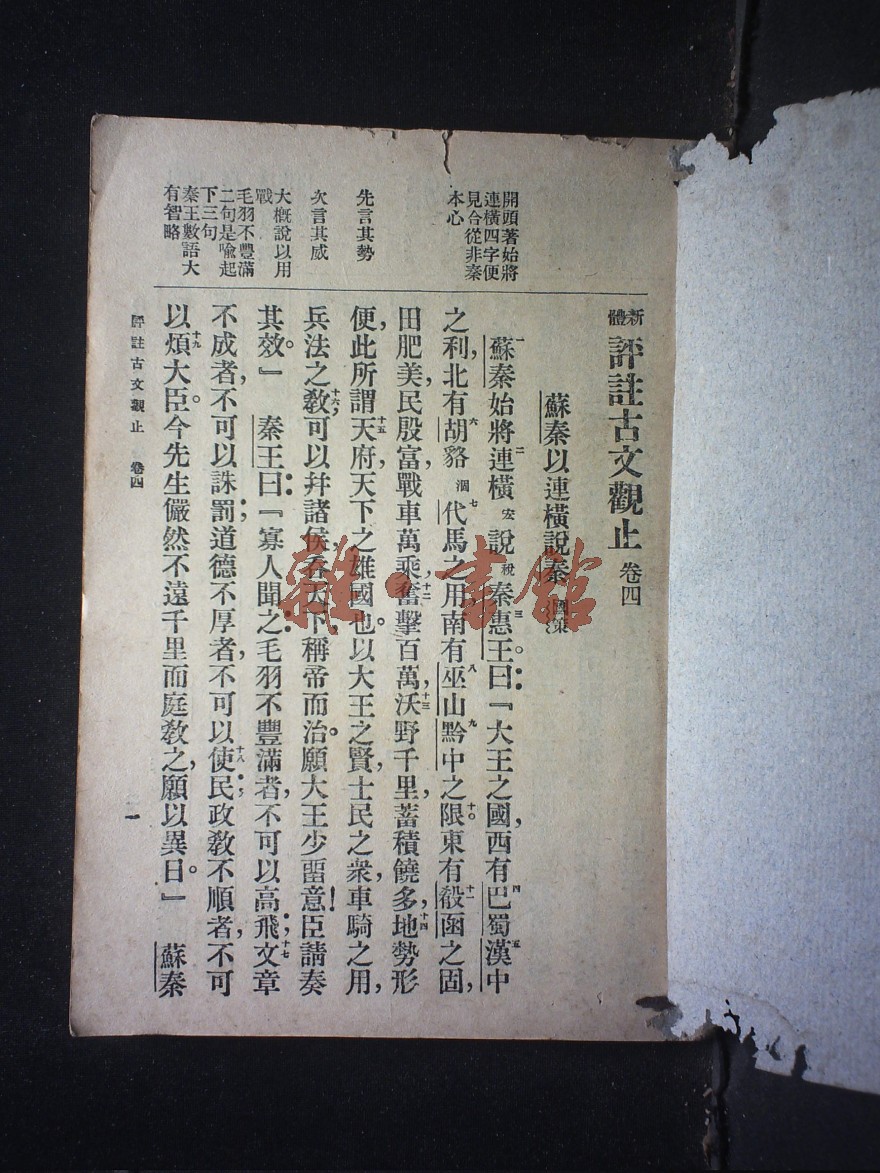 新體 評註古文觀止 卷四
蘇秦以連橫說秦 國策
一蘇秦始將二連橫宏說稅秦三惠王。曰：「大王之國，西有四巴蜀五漢中
之利，北有六胡貉涸七代馬之用，南有八巫山九黔中之限十。東有十一殽函之固，
田肥美，民殷富，戰車萬乘，十二奮擊百萬，十三沃野千里，蓄積饒多，十四地勢形
便，此所謂十五天府，天下之雄國也。以大王之賢，士民之衆，車騎之用，
兵法之教，十六可以幷諸侯，吞天下，稱帝而治。願大王少畱意！臣請奏
其效。」 秦王曰：「寡人聞之：毛羽不豐滿者，不可以高飛；十七文章
不成者，不可以誅罰；道德不厚者，不可以使十八民；政教不順者，不可
以煩十九大臣。今先生儼然不遠千里而庭教之，願以異日。」 蘇秦
開頭著始將
連橫四字便
見合從非秦
本心
先言其勢
次言其威
大概說以用
戰
毛羽不豐滿
二句是喩起
下三句
秦王數語大
有智略
評註古文觀止 卷四
一
雜·書館